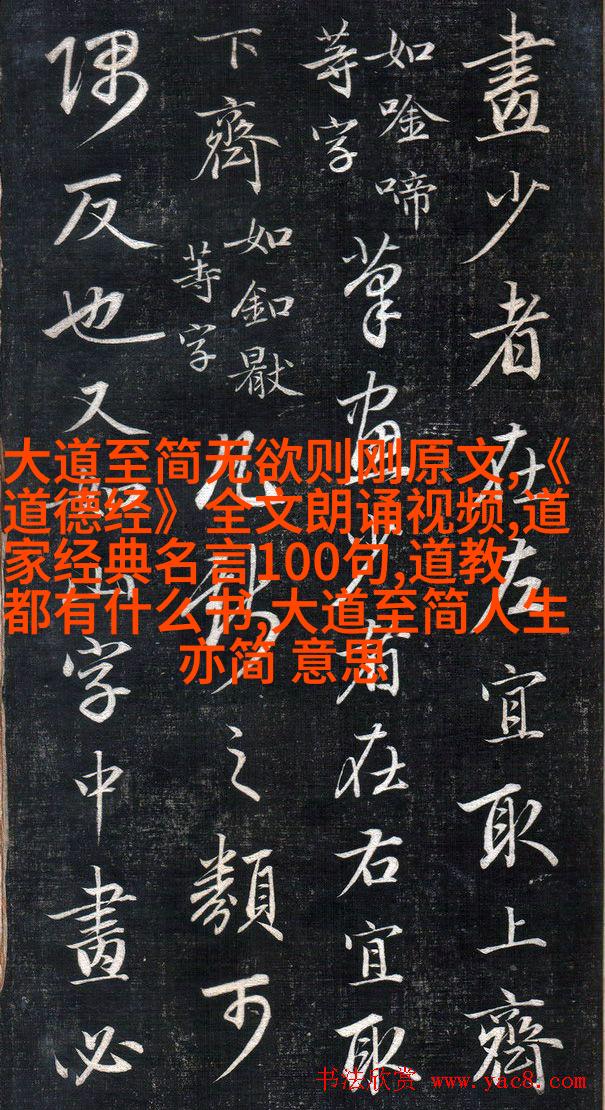 畫少者在左宜取上齊
如唫啼
等字
筆畫少者在右宜取
下齊
如釦
等字
凡之類可
隅反也又如山字中畫必
大道至简无欲则刚原文,《
道德经》全文朗诵视频,道
家经典名言100句,道教
都有什么书,大道至简人生
亦简 意思
书法欣赏 www.yac8.com